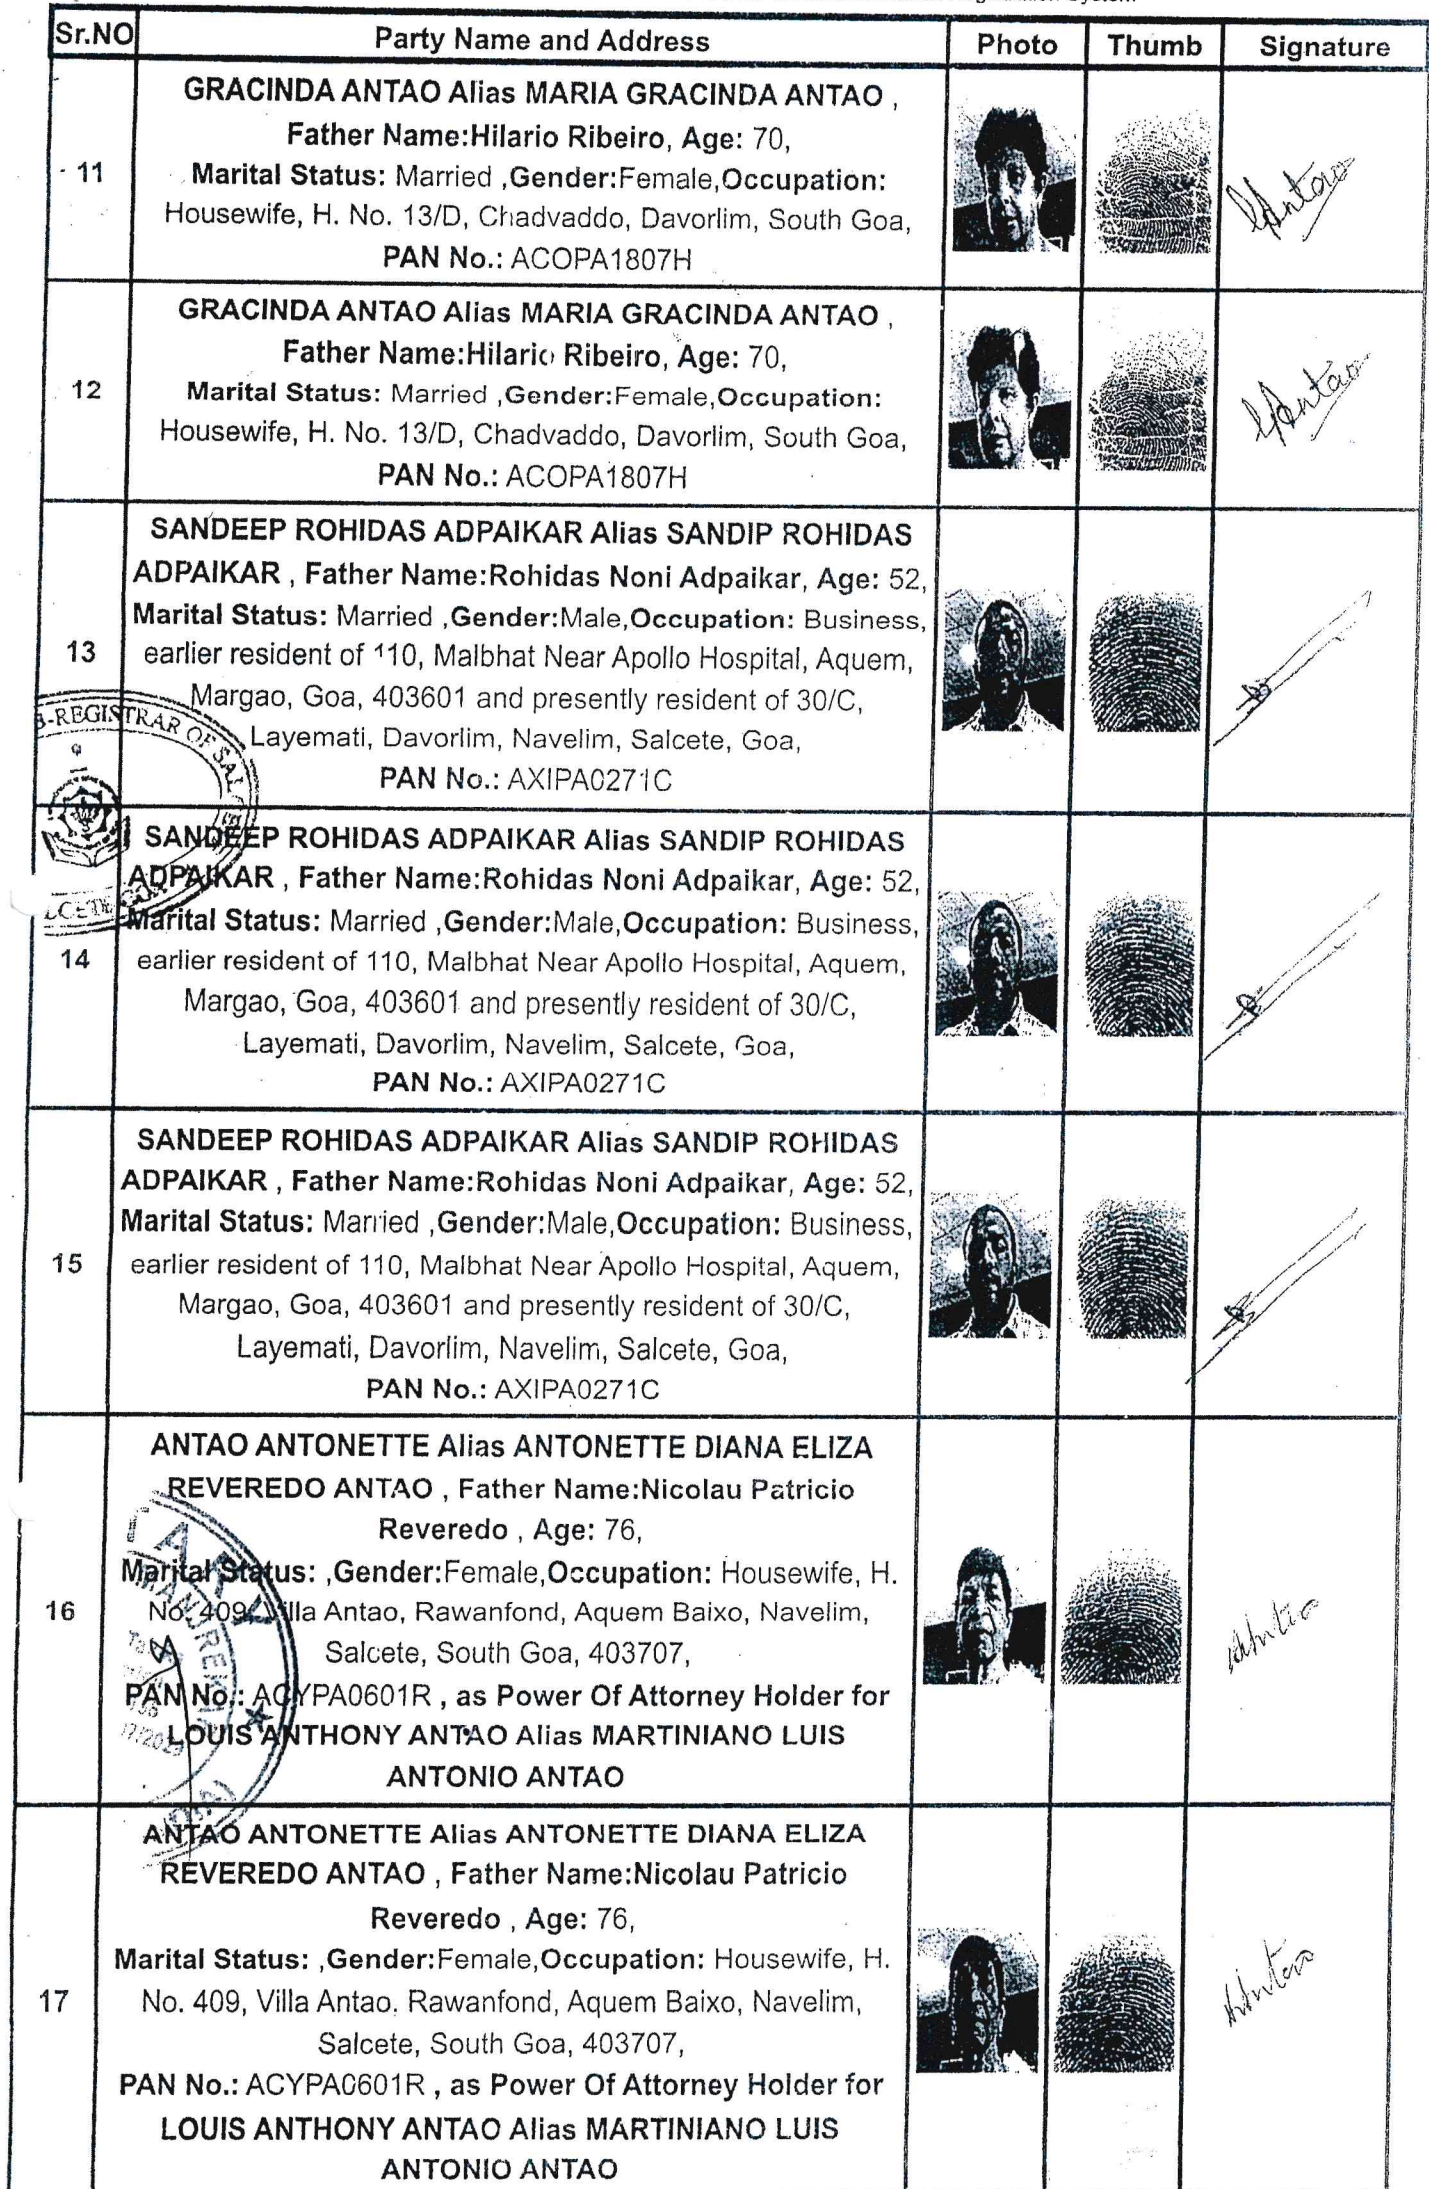 System
Sr.NO Party Name and Address Photo Thumb Signature
11
GRACINDA ANTAO Alias MARIA GRACINDA ANTAO ,
Father Name:Hilario Ribeiro, Age: 70,
Marital Status: Married ,Gender:Female,Occupation:
Housewife, H. No. 13/D, Chadvaddo, Davorlim, South Goa,
PAN No.: ACOPA1807H
GAntao
12
GRACINDA ANTAO Alias MARIA GRACINDA ANTAO ,
Father Name:Hilario Ribeiro, Age: 70,
Marital Status: Married ,Gender:Female,Occupation:
Housewife, H. No. 13/D, Chadvaddo, Davorlim, South Goa,
PAN No.: ACOPA1807H
GAntao
13
SANDEEP ROHIDAS ADPAIKAR Alias SANDIP ROHIDAS
ADPAIKAR , Father Name:Rohidas Noni Adpaikar, Age: 52,
Marital Status: Married ,Gender:Male,Occupation: Business,
earlier resident of 110, Malbhat Near Apollo Hospital, Aquem,
Margao, Goa, 403601 and presently resident of 30/C,
Layemati, Davorlim, Navelim, Salcete, Goa,
PAN No.: AXIPA0271C
B-REGISTRAR OF SAL
LCETE
14
SANDEEP ROHIDAS ADPAIKAR Alias SANDIP ROHIDAS
ADPAIKAR , Father Name:Rohidas Noni Adpaikar, Age: 52,
Marital Status: Married ,Gender:Male,Occupation: Business,
earlier resident of 110, Malbhat Near Apollo Hospital, Aquem,
Margao, Goa, 403601 and presently resident of 30/C,
Layemati, Davorlim, Navelim, Salcete, Goa,
PAN No.: AXIPA0271C
15
SANDEEP ROHIDAS ADPAIKAR Alias SANDIP ROHIDAS
ADPAIKAR , Father Name:Rohidas Noni Adpaikar, Age: 52,
Marital Status: Married ,Gender:Male,Occupation: Business,
earlier resident of 110, Malbhat Near Apollo Hospital, Aquem,
Margao, Goa, 403601 and presently resident of 30/C,
Layemati, Davorlim, Navelim, Salcete, Goa,
PAN No.: AXIPA0271C
16
ANTAO ANTONETTE Alias ANTONETTE DIANA ELIZA
REVEREDO ANTAO , Father Name:Nicolau Patricio
Reveredo , Age: 76,
Marital Status: ,Gender:Female,Occupation: Housewife, H.
No. 409, Villa Antao, Rawanfond, Aquem Baixo, Navelim,
Salcete, South Goa, 403707,
PAN No.: ACYPA0601R , as Power Of Attorney Holder for
LOUIS ANTHONY ANTAO Alias MARTINIANO LUIS
ANTONIO ANTAO
TARY
17
ANTAO ANTONETTE Alias ANTONETTE DIANA ELIZA
REVEREDO ANTAO , Father Name:Nicolau Patricio
Reveredo , Age: 76,
Marital Status: ,Gender:Female,Occupation: Housewife, H.
No. 409, Villa Antao, Rawanfond, Aquem Baixo, Navelim,
Salcete, South Goa, 403707,
PAN No.: ACYPA0601R , as Power Of Attorney Holder for
LOUIS ANTHONY ANTAO Alias MARTINIANO LUIS
ANTONIO ANTAO